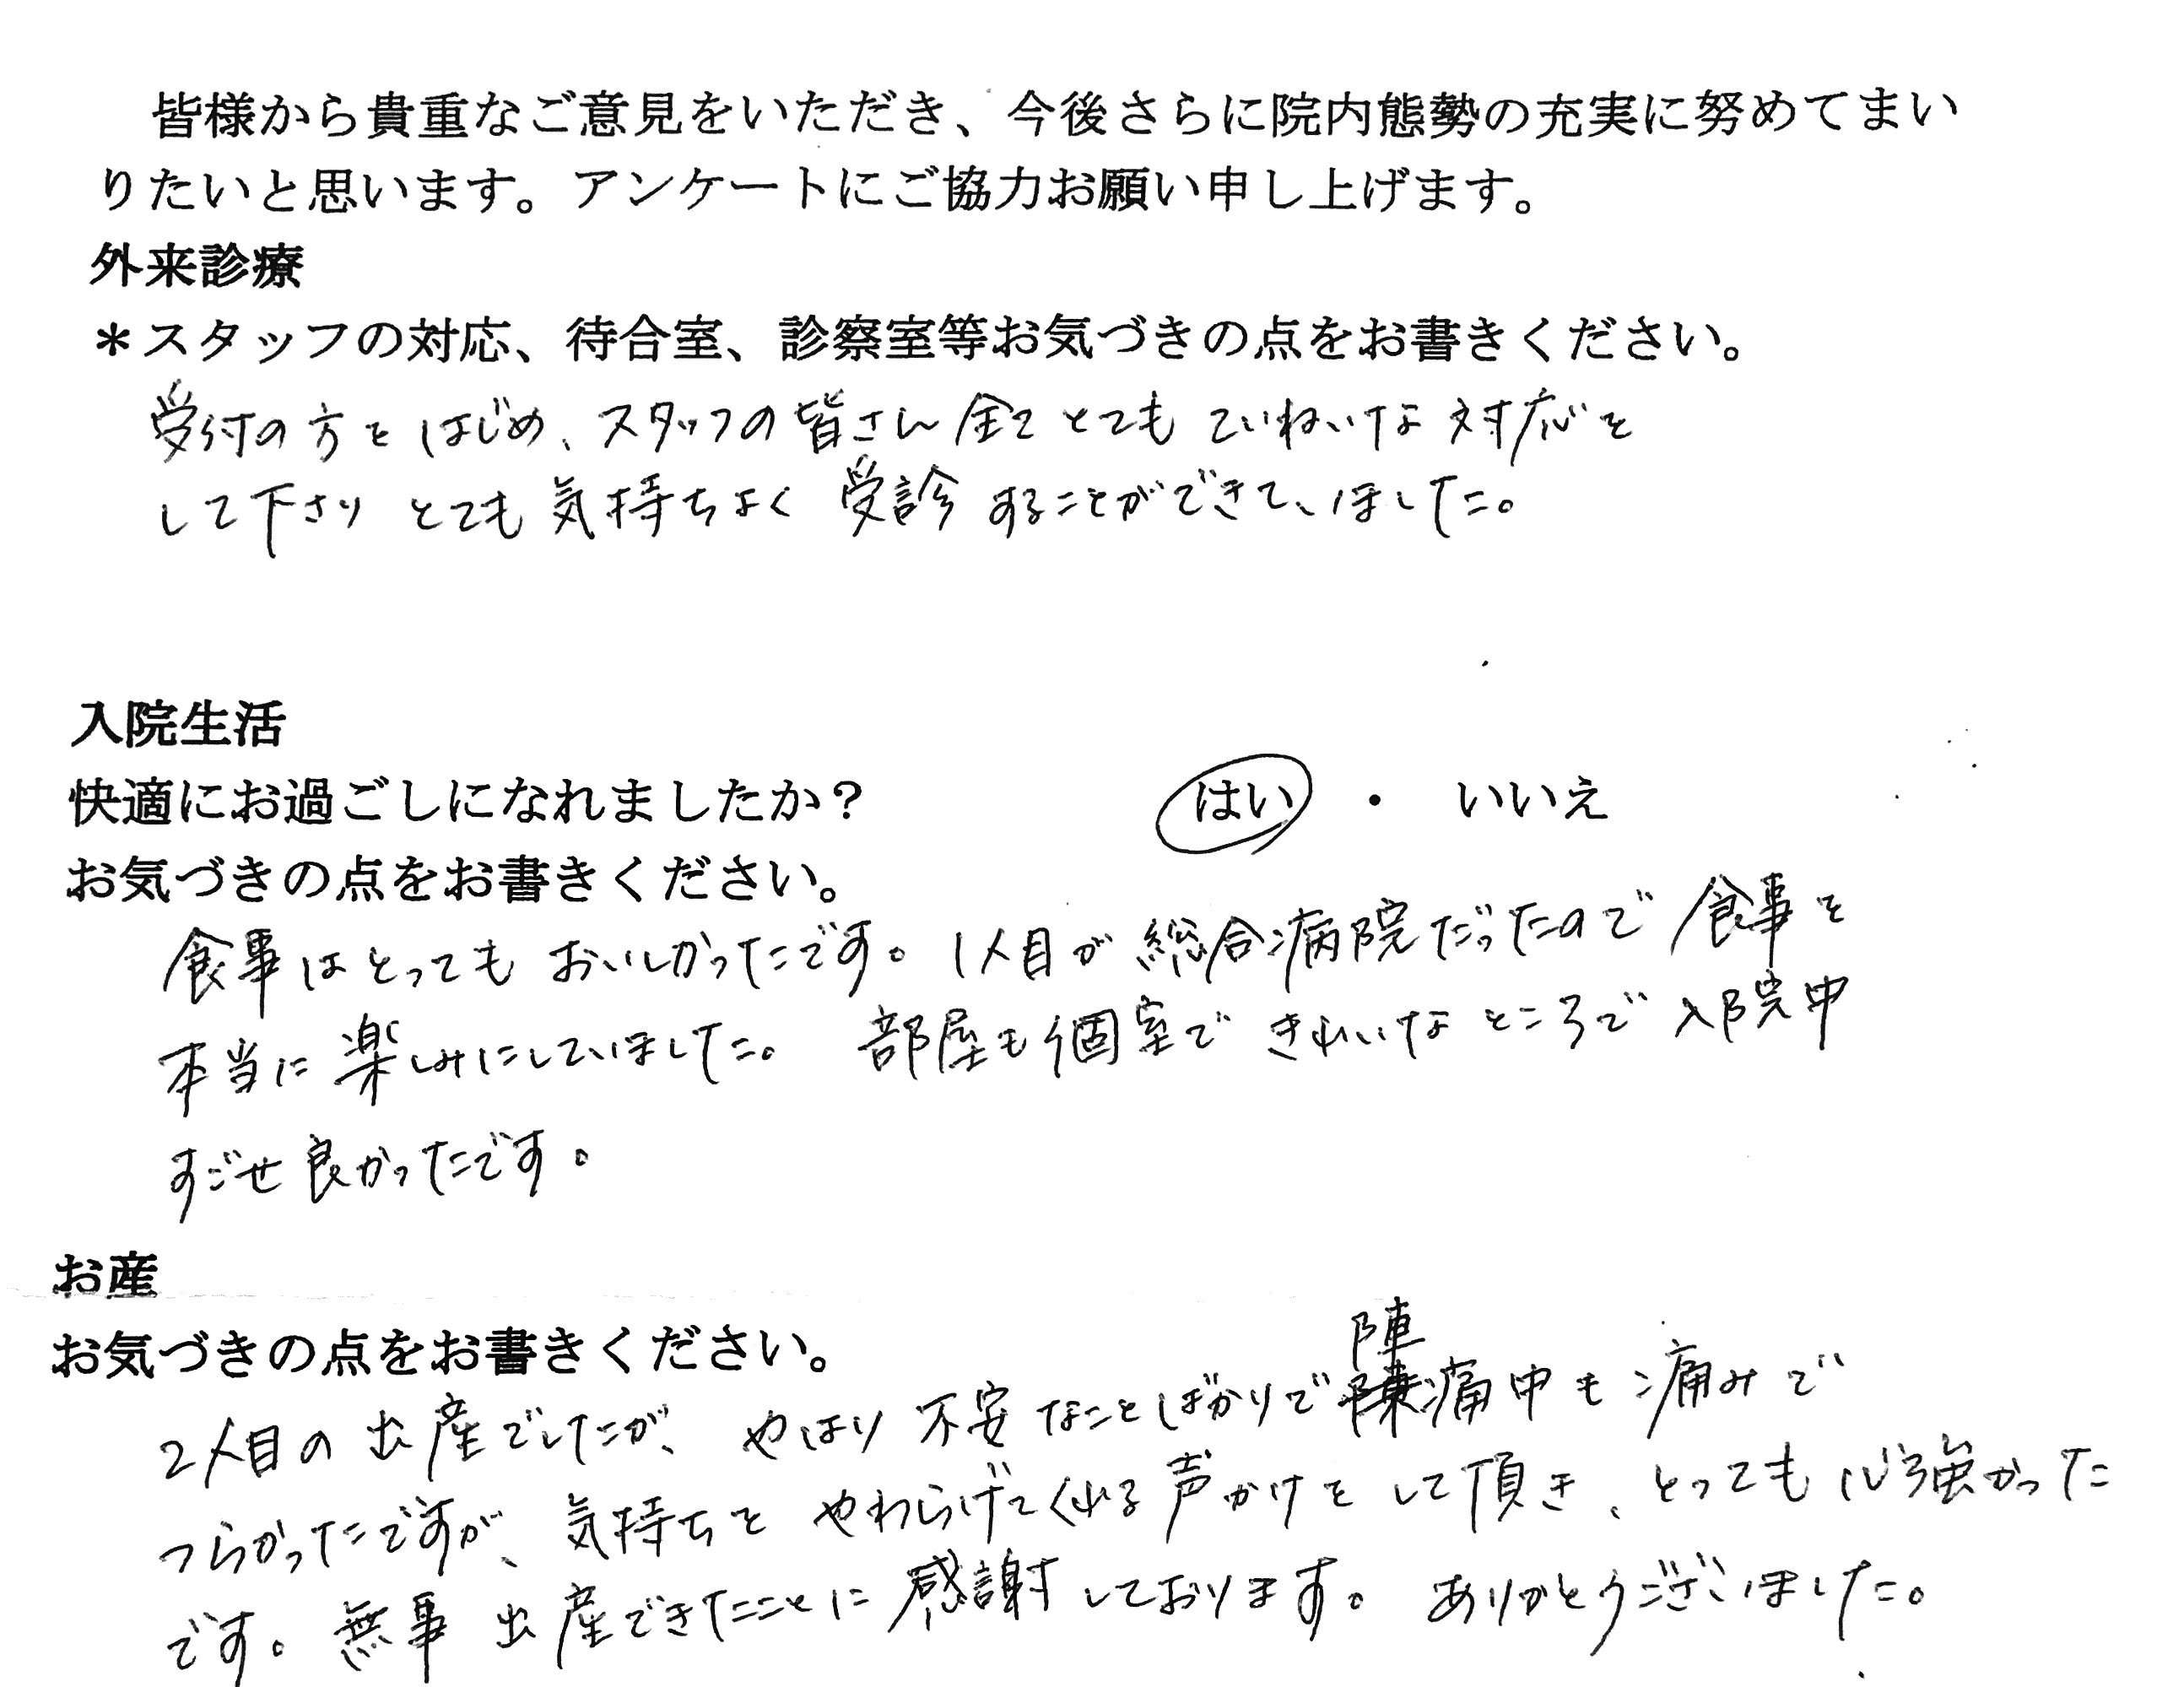 皆様から貴重なご意見をいただき、今後さらに院内態勢の充実に努めてまい
りたいと思います。アンケートにご協力お願い申し上げます。
外来診療
＊スタッフの対応、待合室、診察室等お気づきの点をお書きください。
受付の方をはじめ、スタッフの皆さん全てとてもていねいな対応を
して下さりとても気持ちよく受診することができていました。
入院生活
快適にお過ごしになれましたか？ はい ・ いいえ
お気づきの点をお書きください。
食事はとってもおいしかったです。1人目が総合病院だったので食事を
本当に楽しみにしていました。 部屋も個室できれいなところで入院中
すごせ良かったです。
お産
お気づきの点をお書きください。
2人目の出産でしたが、やはり不安なことばかりで陣痛中も痛みで
つらかったですが、気持ちをやわらげてくれる声かけをして頂き、とっても心強かった
です。無事出産できたことに感謝しております。ありがとうございました。